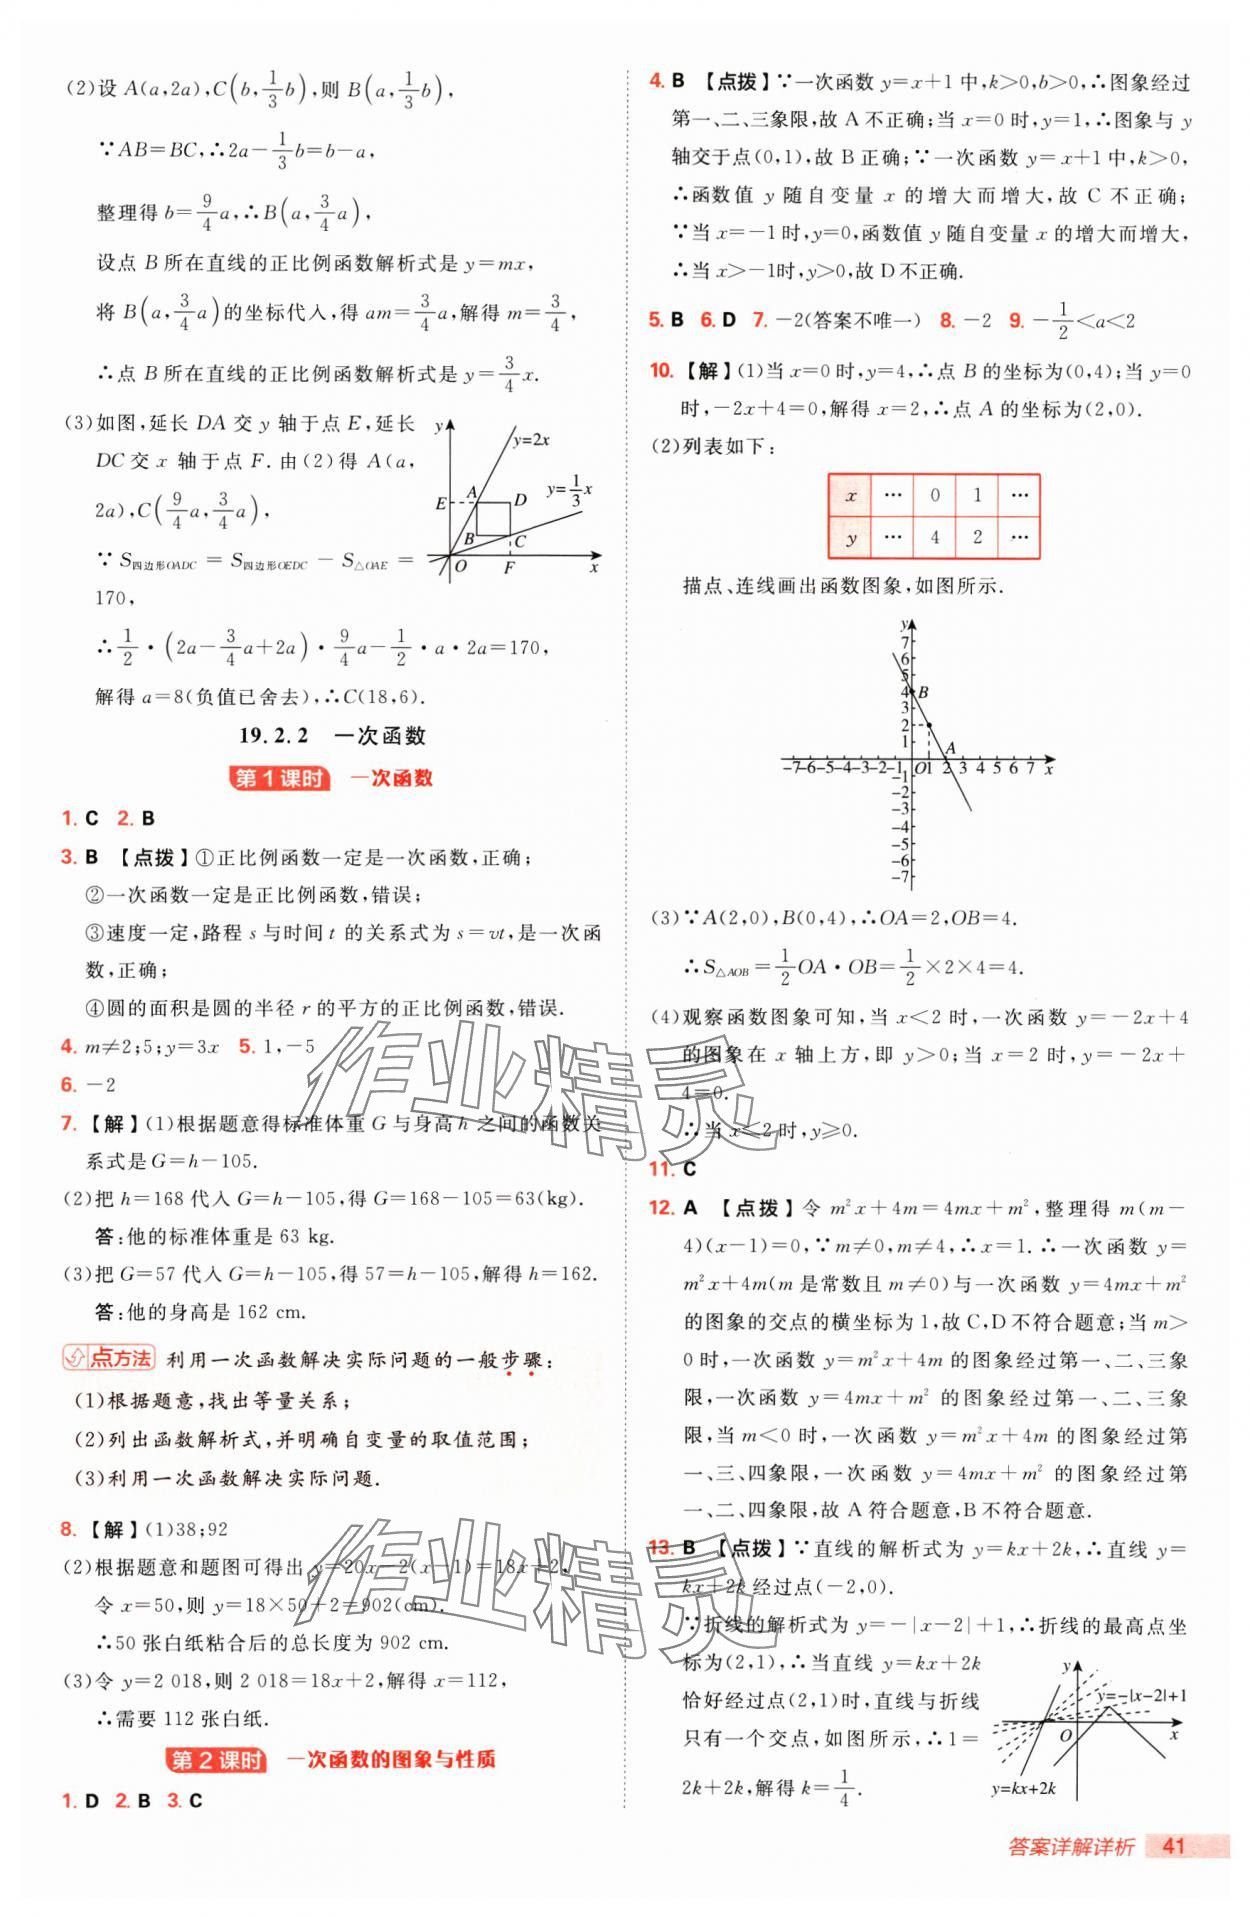 (2)设 A(a,2a),C(b,1/3b),则 B(a,1/3b),
∵AB=BC,∴2a-1/3b=b-a,
整理得 b=9/4a,∴B(a,3/4a),
设点 B 所在直线的正比例函数解析式是 y=mx,
将 B(a,3/4a)的坐标代入,得 am=3/4a,解得 m=3/4,
∴点 B 所在直线的正比例函数解析式是 y=3/4x.
(3)如图,延长 DA 交 y 轴于点 E,延长
DC 交 x 轴于点 F. 由(2)得 A(a,
2a),C(9/4a,3/4a),
∵S四边形OADC=S四边形OEDC-S△OAE=
170,
y
y=2x
y=1/3x
E
A
D
B
C
O
F
x
∴1/2·(2a-3/4a+2a)·9/4a-1/2·a·2a=170,
解得 a=8(负值已舍去),∴C(18,6).
19.2.2 一次函数
第1课时 一次函数
1. C 2. B
3. B 【点拨】①正比例函数一定是一次函数,正确;
②一次函数一定是正比例函数,错误;
③速度一定,路程 s 与时间 t 的关系式为 s=vt,是一次函
数,正确;
④圆的面积是圆的半径 r 的平方的正比例函数,错误.
4. m≠2;5;y=3x 5. 1,-5
6. -2
7. 【解】(1)根据题意得标准体重 G 与身高 h 之间的函数关
系式是 G=h-105.
(2)把 h=168 代入 G=h-105,得 G=168-105=63(kg).
答:他的标准体重是 63 kg.
(3)把 G=57 代入 G=h-105,得 57=h-105,解得 h=162.
答:他的身高是 162 cm.
点方法 利用一次函数解决实际问题的一般步骤:
(1)根据题意,找出等量关系;
(2)列出函数解析式,并明确自变量的取值范围;
(3)利用一次函数解决实际问题.
8. 【解】(1)38;92
(2)根据题意和题图可得出 y=20x-2(x-1)=18x+2,
令 x=50,则 y=18×50+2=902(cm).
∴50 张白纸粘合后的总长度为 902 cm.
(3)令 y=2 018,则 2 018=18x+2,解得 x=112,
∴需要 112 张白纸.
第2课时 一次函数的图象与性质
1. D 2. B 3. C
4. B 【点拨】∵一次函数 y=x+1 中,k>0,b>0,∴图象经过
第一、二、三象限,故 A 不正确;当 x=0 时,y=1,∴图象与 y
轴交于点(0,1),故 B 正确;∵一次函数 y=x+1 中,k>0,
∴函数值 y 随自变量 x 的增大而增大,故 C 不正确;
∵当 x=-1 时,y=0,函数值 y 随自变量 x 的增大而增大,
∴当 x>-1时,y>0,故 D 不正确.
5. B 6. D 7. -2(答案不唯一) 8. -2 9. -1/2<a<2
10. 【解】(1)当 x=0 时,y=4,∴点 B 的坐标为(0,4);当 y=0
时,-2x+4=0,解得 x=2,∴点 A 的坐标为(2,0).
(2)列表如下:
x … 0 1 …
y … 4 2 …
描点、连线画出函数图象,如图所示.
y
7
6
5
4 B
3
2
1 A
-7-6-5-4-3-2-1 O 1 2 3 4 5 6 7 x
-2
-3
-4
-5
-6
-7
(3)∵A(2,0),B(0,4),∴OA=2,OB=4.
∴S△AOB=1/2OA·OB=1/2×2×4=4.
(4)观察函数图象可知,当 x<2 时,一次函数 y=-2x+4
的图象在 x 轴上方,即 y>0;当 x=2 时,y=-2x+
4=0.
∴当 x≤2 时,y≥0.
11. C
12. A 【点拨】令 m²x+4m=4mx+m²,整理得 m(m-
4)(x-1)=0,∵m≠0,m≠4,∴x=1. ∴一次函数 y=
m²x+4m(m 是常数且 m≠0)与一次函数 y=4mx+m²
的图象的交点的横坐标为 1,故 C,D 不符合题意;当 m>
0 时,一次函数 y=m²x+4m 的图象经过第一、二、三象
限,一次函数 y=4mx+m² 的图象经过第一、二、三象
限,当 m<0 时,一次函数 y=m²x+4m 的图象经过第
一、三、四象限,一次函数 y=4mx+m² 的图象经过第
一、二、四象限,故 A 符合题意,B 不符合题意.
13. B 【点拨】∵直线的解析式为 y=kx+2k,∴直线 y=
kx+2k 经过点(-2,0).
∵折线的解析式为 y=-|x-2|+1,∴折线的最高点坐
标为(2,1),∴当直线 y=kx+2k
恰好经过点(2,1)时,直线与折线
只有一个交点,如图所示,∴1=
2k+2k,解得 k=1/4.
y
y=-|x-2|+1
O
x
y=kx+2k
作业精灵
作业精灵
答案详解详析 41